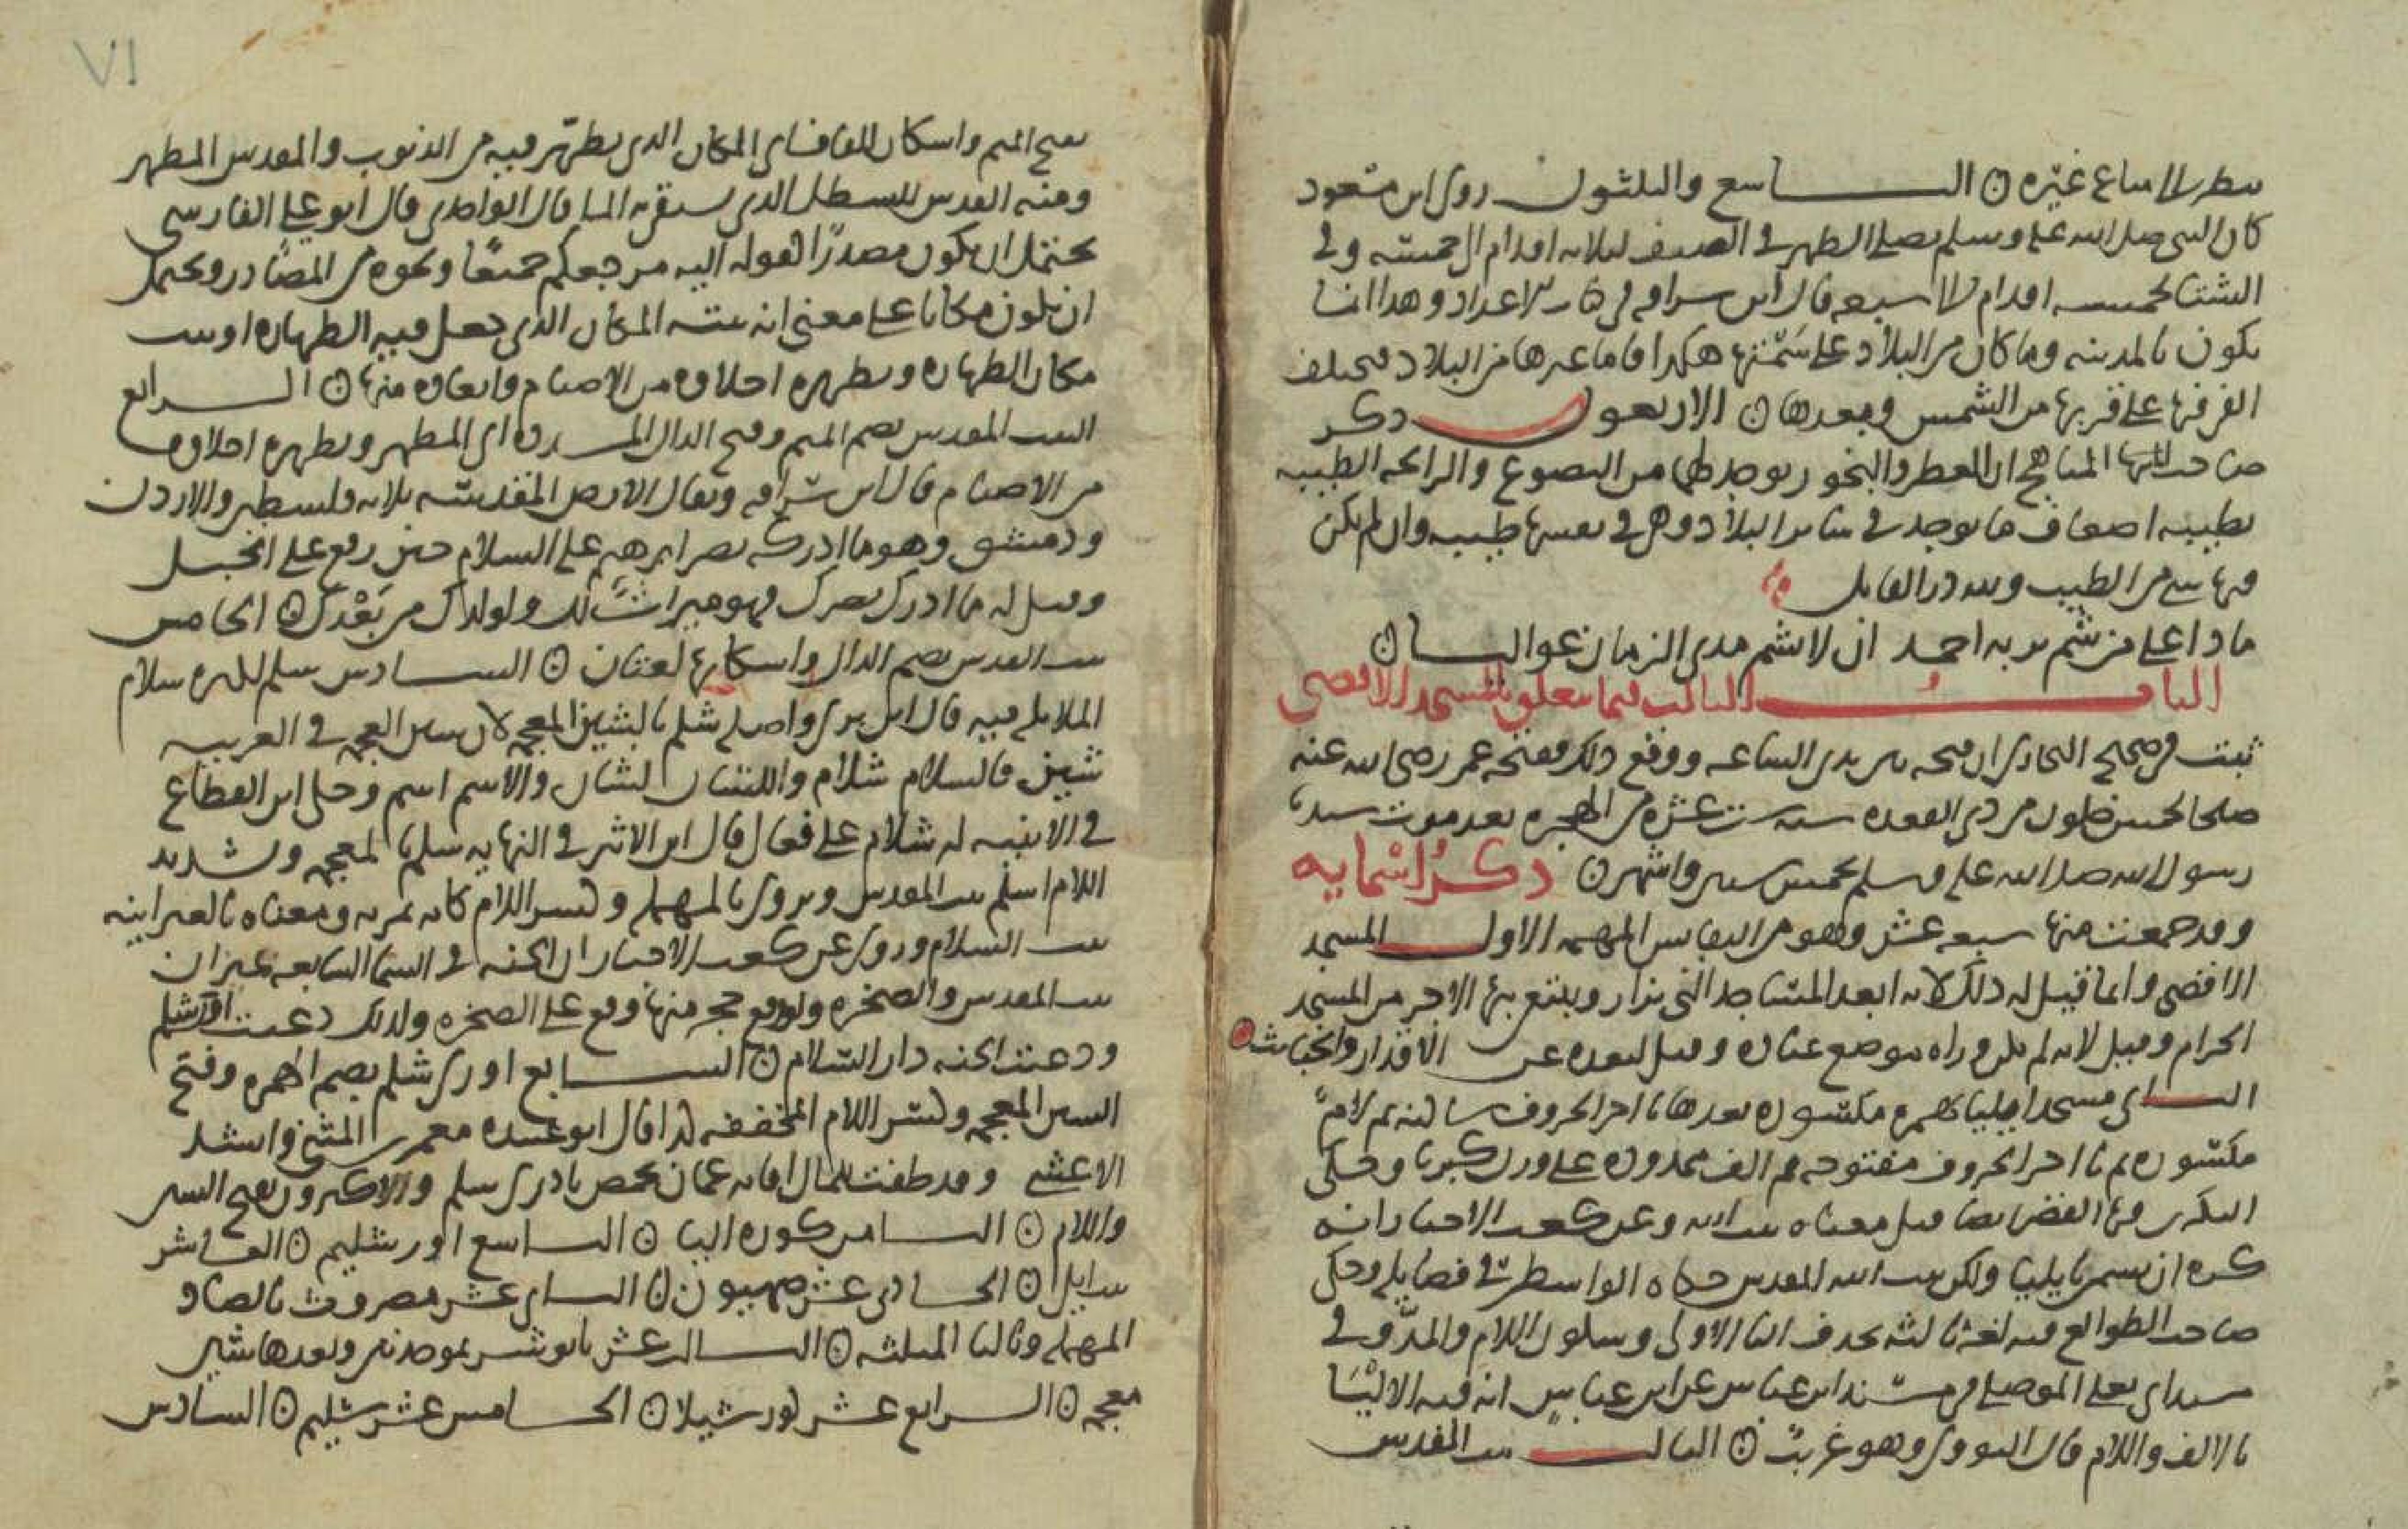 ينظر الا متاع غيره ۞ التاسع والثلثون روى ابن مسعود
كان النبي صلى الله عليه وسلم يصلي الظهر في الصيف لثلاثة اقدام الى خمسة وفي
الشتا لخمسة اقدام الى سبعة قال ابن سراقة في كتاب الاعداد وهذا انما
يكون بالمدينة وما كان من البلاد على سمتها هكذا فاما غيرها من البلاد فيختلف
الفي فيها على قربها من الشمس وبعدها ۞ الاربعون ذكر
صاحب المناهج ان العطر والبخور يوجد لها من التضوع والرائحة الطيبة
بطيبة اضعاف ما يوجد في سائر البلاد وهي في نفسها طيبة وان لم يكن
فيها شي من الطيب ولله در القايل
ماذا على من شم تربة احمد ان لا يشم مدى الزمان غواليا ۞
الباب الثالث فيما يتعلق بالمسجد الاقصى
ثبت في صحيح البخاري ان فتحه بين يدي الساعة ووقع ذلك ففتحه عمر رضي الله عنه
صلحا لخمس خلون من ذي القعدة سنة ست عشرة من الهجرة بعد موت سيدنا
رسول الله صلى الله عليه وسلم بخمس سنين واشهر ۞ ذكر اسمايه
وقد جمعت منها سبعة عشر وهو من النفايس المهمة الاول المسجد
الاقصى وانما قيل له ذلك لانه ابعد المساجد التي تزار ويبتغى بها الاجر من المسجد
الحرام وقيل لانه لم يكن وراه موضع عبادة وقيل لبعده عن الاقذار والخبائث ۞
الثاني مسجد ايليا بهمزة مكسورة بعدها يا اخر الحروف ساكنة ثم لام
مكسورة ثم يا اخر الحروف مفتوحة ثم الف ممدودة على وزن كبريا وحكى
البكري فيها القصر ايضا قيل معناه بيت الله وعن كعب الاحبار انه
كره ان يسمى بايليا ولكن بيت الله المقدس حكاه الواسطي في فضايله وحكى
صاحب الطوالع فيه لغة ثالثة بحذف اليا الاولى وسكون اللام والمد وفي
مسند ابي يعلى الموصلي في مسند ابن عباس عن ابن عباس انه فيه الاليا
بالالف واللام قال النووي وهو غريب ۞ الثالث بيت المقدس
بفتح الميم واسكان القاف اي المكان الذي يطهر فيه من الذنوب والمقدس المطهر
ومنه القدس للسطل الذي يستقى به الما قال الواحدي قال ابو علي الفارسي
يحتمل ان يكون مصدرا لقوله اليه مرجعكم جميعا ونحوه من المصادر ويحتمل
ان يكون مكانا على معنى انه بيت المكان الذي جعل فيه الطهارة او بيت
مكان الطهارة وتطهيره اخلاوه من الاصنام وابعاده منها ۞ الرابع
البيت المقدس بضم الميم وفتح الدال المشددة اي المطهر وتطهيره اخلاوه
من الاصنام قال ابن سراقة ويقال الارض المقدسة ثلاثة فلسطين والاردن
ودمشق وهو ما ادركه بصر ابرهيم عليه السلام حين رفع على الجبل
وقيل له ما ادرك بصرك فهو ميراث لك ولولدك من بعدك ۞ الخامس
بيت القدس بضم الدال واسكانها لغتان ۞ السادس سلم لكثرة سلام
الملايكة فيه قال ابن بري واصله شلم بالشين المعجمة لان سين العجمة في العربية
شين فالسلام شلام واللسان لشان والاسم اسم وحكى ابن القطاع
في الابنية له شلام على فعال قال ابن الاثير في النهاية شلم بالمعجمة وتشديد
اللام اسم بيت المقدس ويروى بالمهملة وكسر اللام كانه عربه ومعناه بالعبرانية
بيت السلام وروي عن كعب الاحبار ان الجنة في السما السابعة بميزان
بيت المقدس والصخرة ولو وقع حجر منها وقع على الصخرة ولذلك دعيت اورشلم
ودعيت الجنة دار السلام ۞ السابع اوري شلم بضم الهمزة وفتح
الشين المعجمة وكسر اللام المخففة كذا قال ابو عبيدة معمر بن المثنى وانشد
الاعشى وقد طفت للمال افاقه عمان فحمص فاوري شلم والاكثرون بفتح الشين
واللام ۞ الثامن كورة اليا ۞ التاسع اورشليم ۞ العاشر
بيت ايل ۞ الحادي عشر صهيون ۞ الثاني عشر مصروث بالصاد
المهملة وبالثا المثلثة ۞ الثالث عشر بابوش بموحدتين وبعدها شين
معجمة ۞ الرابع عشر كورشيلا ۞ الخامس عشر شليم ۞ السادس